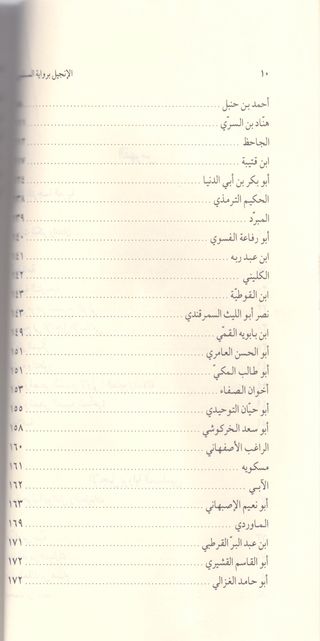 ١٠ الإنجيل برواية
أحمد بن حنبل
هنّاد بن السريّ
الجاحظ
ابن قتيبة
أبو بكر بن أبي الدنيا
الحكيم الترمذي
المبرّد
أبو رفاعة الفسوي
ابن عبد ربه
الكليني
ابن القوطيّة
نصر أبو الليث السمرقندي
ابن بابويه القمّي
أبو الحسن العامري ١٥١
أبو طالب المكيّ ١٥١
أخوان الصفاء ١٥٣
أبو حيّان التوحيدي ١٥٥
أبو سعد الخركوشي ١٥٨
الراغب الأصفهاني ١٦٠
مسكويه ١٦١
الآبي ١٦٢
أبو نعيم الإصبهاني ١٦٣
الماوردي ١٦٩
ابن عبد البرّ القرطبي ١٧١
أبو القاسم القشيري ١٧٢
أبو حامد الغزالي ١٧٢